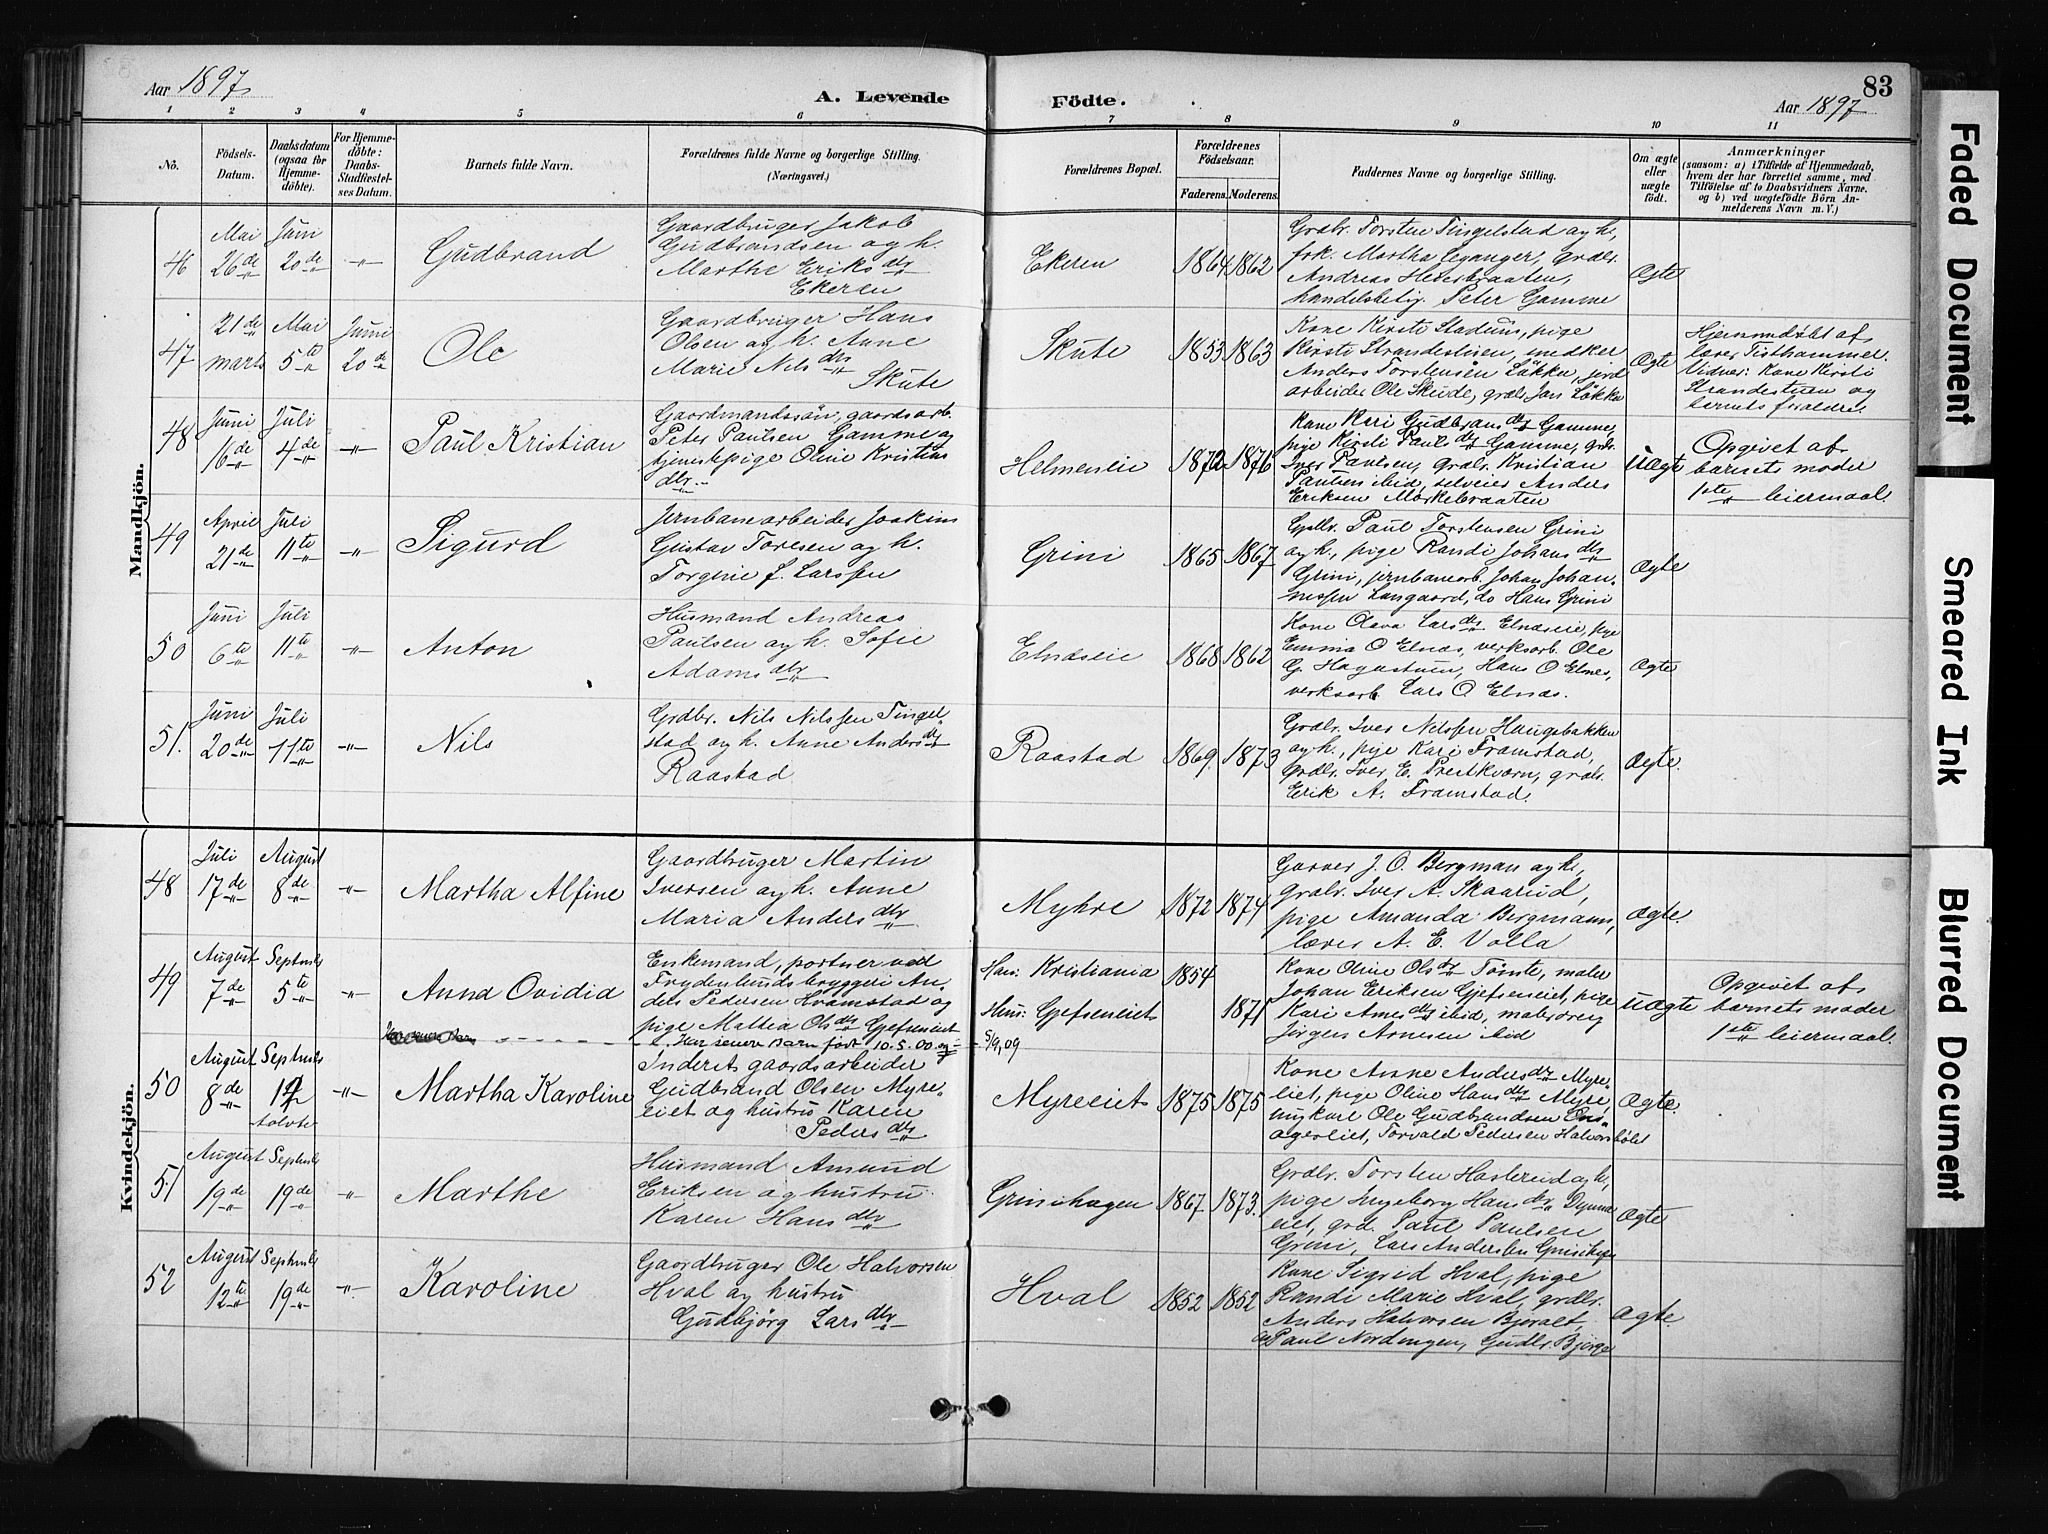 Aar 1897
A. Levende Födte.
83
Aar 1897
1 2 3 4 5 6 7 8 9 10 11
No.
Födsels-Datum.
Daabsdatum (ogsaa for Hjemme-döbte).
For Hjemme-döbte: Daabs-Stadfæstel-ses Datum.
Barnets fulde Navn.
Forældrenes fulde Navne og borgerlige Stilling.
(Næringsvei.)
Forældrenes Bopæl.
Forældrenes Födselsaar.
Faderens. Moderens.
Faddernes Navne og borgerlige Stilling.
Om ægte eller uægte födt.
Anmærkninger
(saasom: a) i Tilfælde af Hjemmedaab, hvem der har forrettet samme, med Tilföielse af to Daabsvidners Navne. og b) ved uægtefödte Börn An-melderens Navn m. V.)
Mandkjön.
46
Mai 26de
Juni 20de
-"-
Gudbrand
Gaardbruger Jakob
Gudbrandsen og h.
Marthe Eriksdtr
Ekeren
Ekeren
1864 1862
Grdbr. Torsten Tingelstad og h.,
frk. Martha Leganger, grdbr.
Andreas
handelsbetj. Peter Gamme
Ægte
47
21de marts
Mai 5te
Juni 20de
Ole
Gaardbruger Hans
Olsen og h. Anne
Marie Nilsdtr
Skute
Skute
1853 1863
Kone Kirsti Stadum, pige
Kirsti Strandestuen, snedker
Anders Torstensen Løkken, jord
arbeider Ole Skute, grdbr. Jars Løkken
Ægte
Hjemmedøbt af
lærer Tisthammer.
Vidner: Kone Kirsti
Strandestuen og
barnets forældre.
48
Juni 16de
Juli 4de
-"-
Paul Kristian
Gaardmandssøn, gaardsarb.
Peter Paulsen Gamme og
tjenestepige Oline Kristians
dtr.
Helmeneie
1872 1876
Kone Kari Gudbransdtr Gamme,
pige Kirsti Paulsdtr Gamme, grdbr.
Iver Paulsen, grdbr. Kristian
Paulsen ibid, selveier Anders
Eriksen Mørkebraaten
Uægte
Opgivet af
barnets moder
1ste leiermaal.
49
April 21de
Juli 11te
-"-
Sigurd
Jernbanearbeider Joakim
Gustav Toresen og h.
Torgine f. Larssen
Grini
1865 1867
Paul Torstensen Grini
og h., pige Randi Johansdtr
Grini, jernbanearb. Johan Johan-
nessen Langaard, do Hans Grini
Ægte
50
Juni 6te
Juli 11te
-"-
Anton
Husmand Andreas
Paulsen og h. Sofie
Adamsdtr
Elnæseie
1868 1862
Kone Olava Larsdtr Elnæseie, pige
Emma O Elnæs, verksarb. Ole
G. Hagastuen, Hans O Elnes,
verksarb. Lars O Elnæs.
Ægte
51.
Juni 20de
Juli 11te
-"-
Nils
Grdbr. Nils Nilssen Tingel-
stad og h. Anne Andersdtr
Raastad
Raastad
1869. 1873
Grdbr. Iver Nilssen Haugsbakken
og h., pige Kari Framstad,
grdbr. Iver E. Prestkværn, grdbr.
Erik A. Framstad.
Ægte.
Kvindekjön.
48
Juli 17de
August 8de
-"-
Martha Alfine
Gaardbruger Martin
Iversen og h. Anne
Maria Andersdtr
Myhre
1872 1874
Garver J. O. Bergman og h.,
grdbr. Iver A. Skaarud,
pige Amanda Bergmann,
lærer A. E. Volla
Ægte.
49
August 7de
Septmbr 5te
-"-
Anna Ovidia
Enkemand, portner ved
Frydenlunds bryggeri An-
ders Pedersen Framstad og
pige Mathea Olsdtr Gjefseneiet
Har senere Barn født 10.5.00. og
5/9,09
Han: Kristiania
Hun: Gjefseneiet
1854
1871
Kone Oline Olsdtr Tømte, maler
Johan Eriksen Gjefseneiet, pige
Kari Arnesdtr ibid, malersvend
Jørgen Arnesen ibid
Uægte
Opgivet af
barnets moder
1ste leiermaal.
50
August 8de
Septmbr 12
tolvte
-"-
Martha Karoline
Inderst gaardsarbeider
Gudbrand Olsen Myre-
eiet og hustru Karen
Pedersdtr
Myreeiet
1875 1875
Kone Anne Andersdtr Myre-
eiet, pige Oline Hansdtr Myre,
ungkarl Ole Gudbrandsen
ageseiet, Torvald Pedersen Halvorsbølet
Ægte.
51
August 19de
Septmbr 19de
"
Marthe
Husmand Amund
Eriksen og hustru
Karen Hansdtr
Grinihagen
1867 1873.
Grdbr. Torsten Haslerud og h,
pige Ingeborg Hansdtr Dynna
eiet, grd. Paul Paulsen
Grini, Lars Andersen Grinihagen
Ægte
52
August 12te
Septmbr 19de
-"-
Karoline
Gaardbruger Ole Halvorsen
Hval og hustru
Gudbjørg Larsdtr
Hval
1852 1852
Kone Sigrid Hval, pige
Randi Marie Hval, grdbr.
Anders Halvorsen Bjoralt,
Paul Nordengen, Gudbr. Bjørge
Ægte.
Faded Document
Smeared Ink
Blurred Document